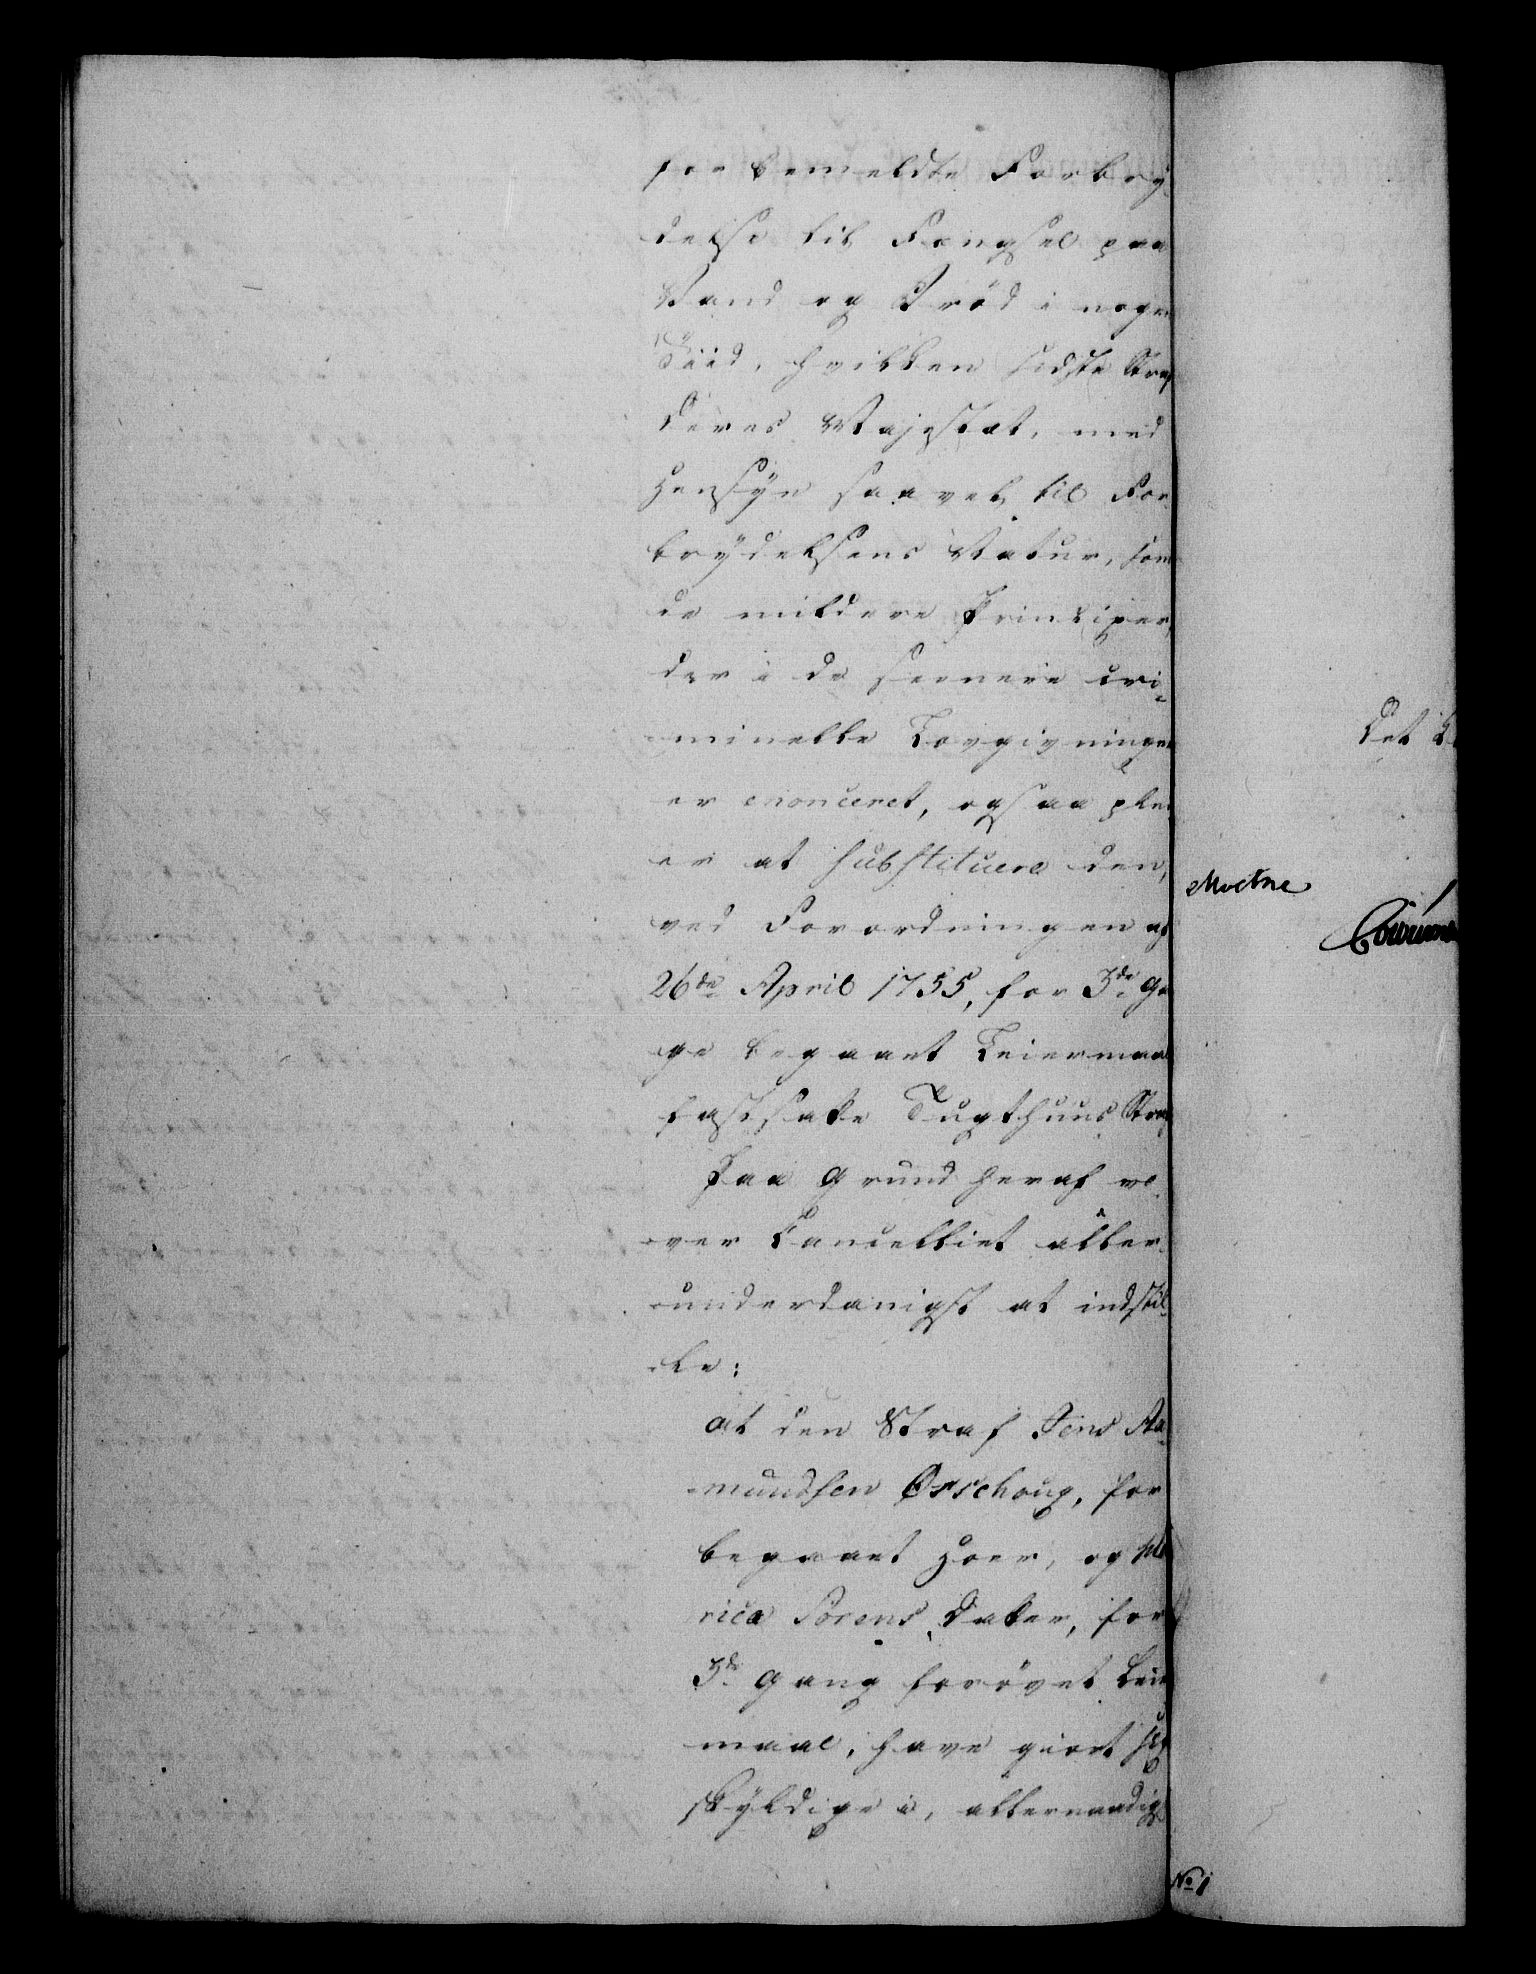 for bemeldte Forbry-
delse til Fængsel paa
Vand og Brød i nogen
Tiid, hvilken sidste Straf
Deres Majestæt, med
Hensÿn saavel til For-
brÿdelsens Natur, som
de mildere Principer,
der i de seenere cri-
minelle Lovgivninger
er enonceret, ogsaa plei-
er at substituere den,
ved Forordningen af
26de April 1755, for 3de Gan-
ge begaaet Leiermaal
fastsatte Tugthuus Straf
Paa Grund heraf vo-
ver Cancelliet aller-
underdanigst at indstil-
le:
at den Straf Jens Aa-
mundsen Ørschoug, for
begaaet Hoer, og
rica Sørens Datter, for
3de Gang forøvet Leier-
maal, have giort sig
skÿldige i, allernaadigst
Det
Moctne
No 1